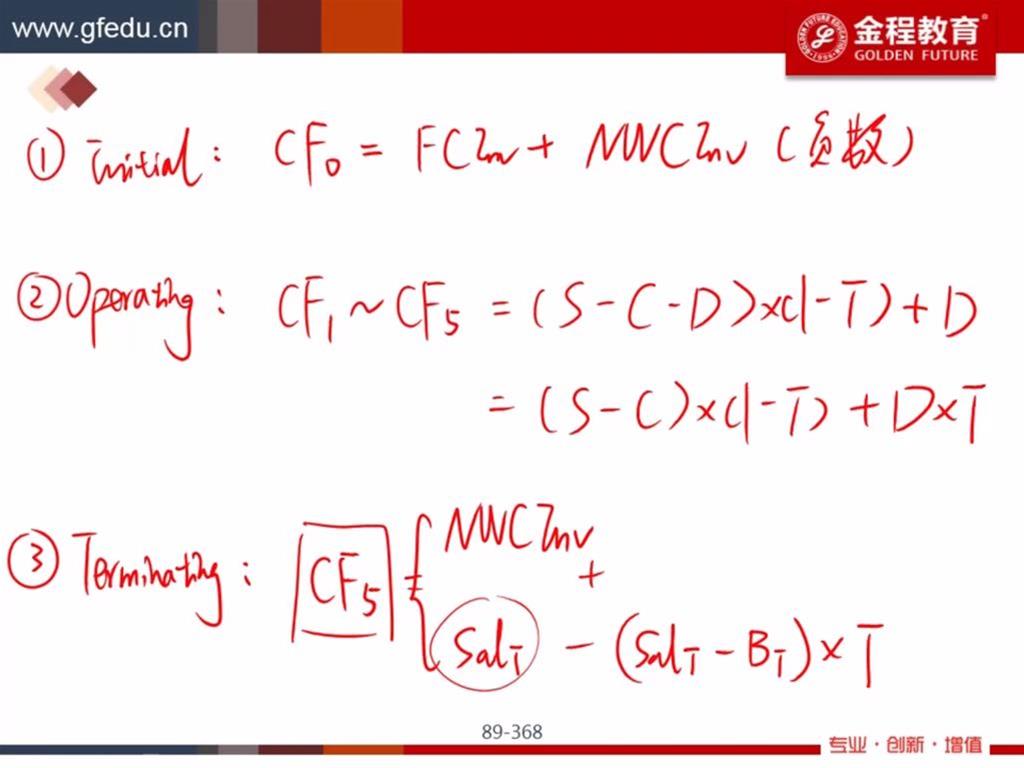 www.gfedu.cn
金程教育®
GOLDEN FUTURE
① Initial: CF₀ = FCInv + NWCInv (负数)
② Operating: CF₁ ~ CF₅ = (S - C - D)×(1 - T) + D
= (S - C)×(1 - T) + D×T
③ Terminating: CF₅ = { NWCInv
+
Sal_T - (Sal_T - B_T) × T
89-368
专业·创新·增值